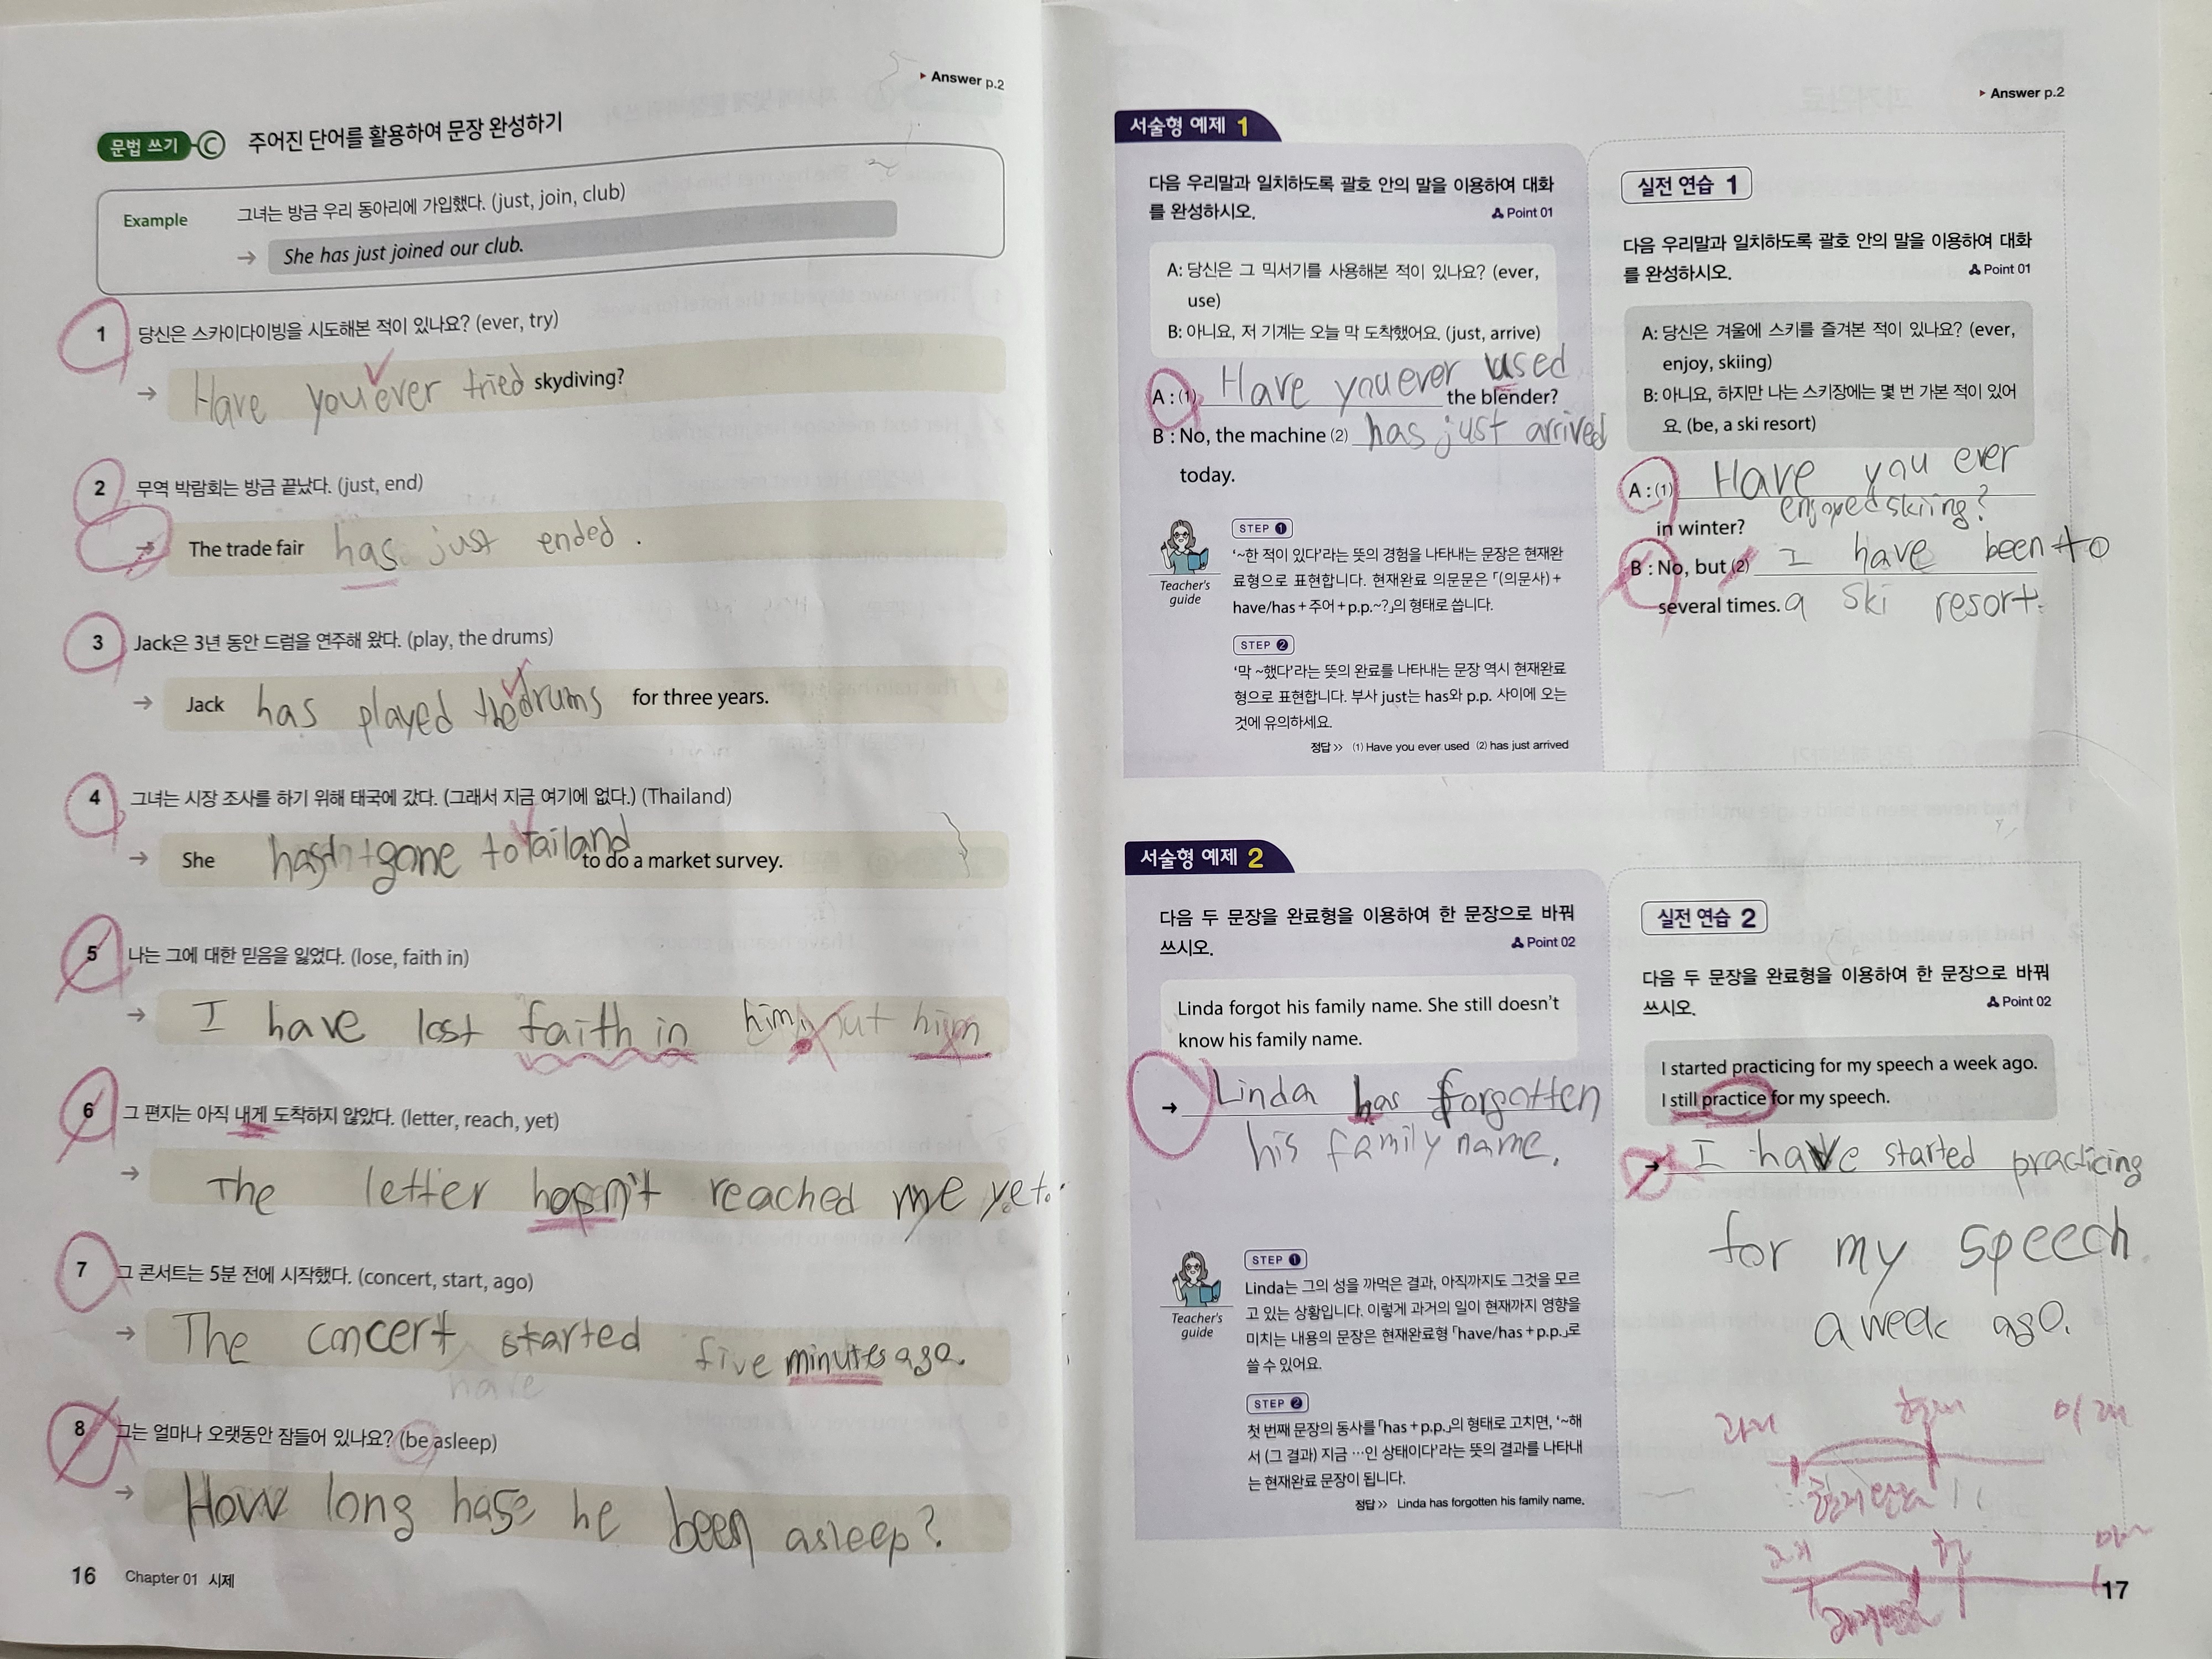 ▸ Answer p.2
문법 쓰기 C 주어진 단어를 활용하여 문장 완성하기
Example 그녀는 방금 우리 동아리에 가입했다. (just, join, club)
→ She has just joined our club.
1 당신은 스카이다이빙을 시도해본 적이 있나요? (ever, try)
→ Have you ever tried skydiving?
2 무역 박람회는 방금 끝났다. (just, end)
→ The trade fair has just ended.
3 Jack은 3년 동안 드럼을 연주해 왔다. (play, the drums)
→ Jack has played the drums for three years.
4 그녀는 시장 조사를 하기 위해 태국에 갔다. (그래서 지금 여기에 없다.) (Thailand)
→ She gone to Tailand to do a market survey.
5 나는 그에 대한 믿음을 잃었다. (lose, faith in)
→ I have lost faith in him, him
6 그 편지는 아직 내게 도착하지 않았다. (letter, reach, yet)
→ The letter hasn't reached me yet.
7 그 콘서트는 5분 전에 시작했다. (concert, start, ago)
→ The concert started five minutes ago.
have
8 그는 얼마나 오랫동안 잠들어 있나요? (be asleep)
→ How long has he been asleep?
16 Chapter 01 시제
▸ Answer p.2
서술형 예제 1
다음 우리말과 일치하도록 괄호 안의 말을 이용하여 대화
를 완성하시오.
Point 01
A: 당신은 그 믹서기를 사용해본 적이 있나요? (ever,
use)
B: 아니요, 저 기계는 오늘 막 도착했어요. (just, arrive)
A : (1) Have you ever used the blender?
B : No, the machine (2) has just arrived
today.
Teacher's
guide
STEP 1
'~한 적이 있다'라는 뜻의 경험을 나타내는 문장은 현재완
료형으로 표현합니다. 현재완료 의문문은 「(의문사) +
have/has + 주어 + p.p.~?」의 형태로 씁니다.
STEP 2
'막 ~했다'라는 뜻의 완료를 나타내는 문장 역시 현재완료
형으로 표현합니다. 부사 just는 has와 p.p. 사이에 오는
것에 유의하세요.
정답 >> (1) Have you ever used (2) has just arrived
실전 연습 1
다음 우리말과 일치하도록 괄호 안의 말을 이용하여 대화
를 완성하시오.
Point 01
A: 당신은 겨울에 스키를 즐겨본 적이 있나요? (ever,
enjoy, skiing)
B: 아니요, 하지만 나는 스키장에는 몇 번 가본 적이 있어
요. (be, a ski resort)
A : (1) Have you ever
enjoyed skiing?
in winter?
B : No, but (2) I have been to
several times. a ski resort.
서술형 예제 2
다음 두 문장을 완료형을 이용하여 한 문장으로 바꿔
쓰시오.
Point 02
Linda forgot his family name. She still doesn't
know his family name.
→ Linda has forgotten
his family name.
Teacher's
guide
STEP 1
Linda는 그의 성을 까먹은 결과, 아직까지도 그것을 모르
고 있는 상황입니다. 이렇게 과거의 일이 현재까지 영향을
미치는 내용의 문장은 현재완료형 「have/has + p.p.」로
쓸 수 있어요.
STEP 2
첫 번째 문장의 동사를 「has + p.p.」의 형태로 고치면, '~해
서 (그 결과) 지금 …인 상태이다'라는 뜻의 결과를 나타내
는 현재완료 문장이 됩니다.
정답 >> Linda has forgotten his family name.
실전 연습 2
다음 두 문장을 완료형을 이용하여 한 문장으로 바꿔
쓰시오.
Point 02
I started practicing for my speech a week ago.
I still practice for my speech.
→ I have started practicing
for my speech
a week ago.
과거 현재 미래
현재완료
17